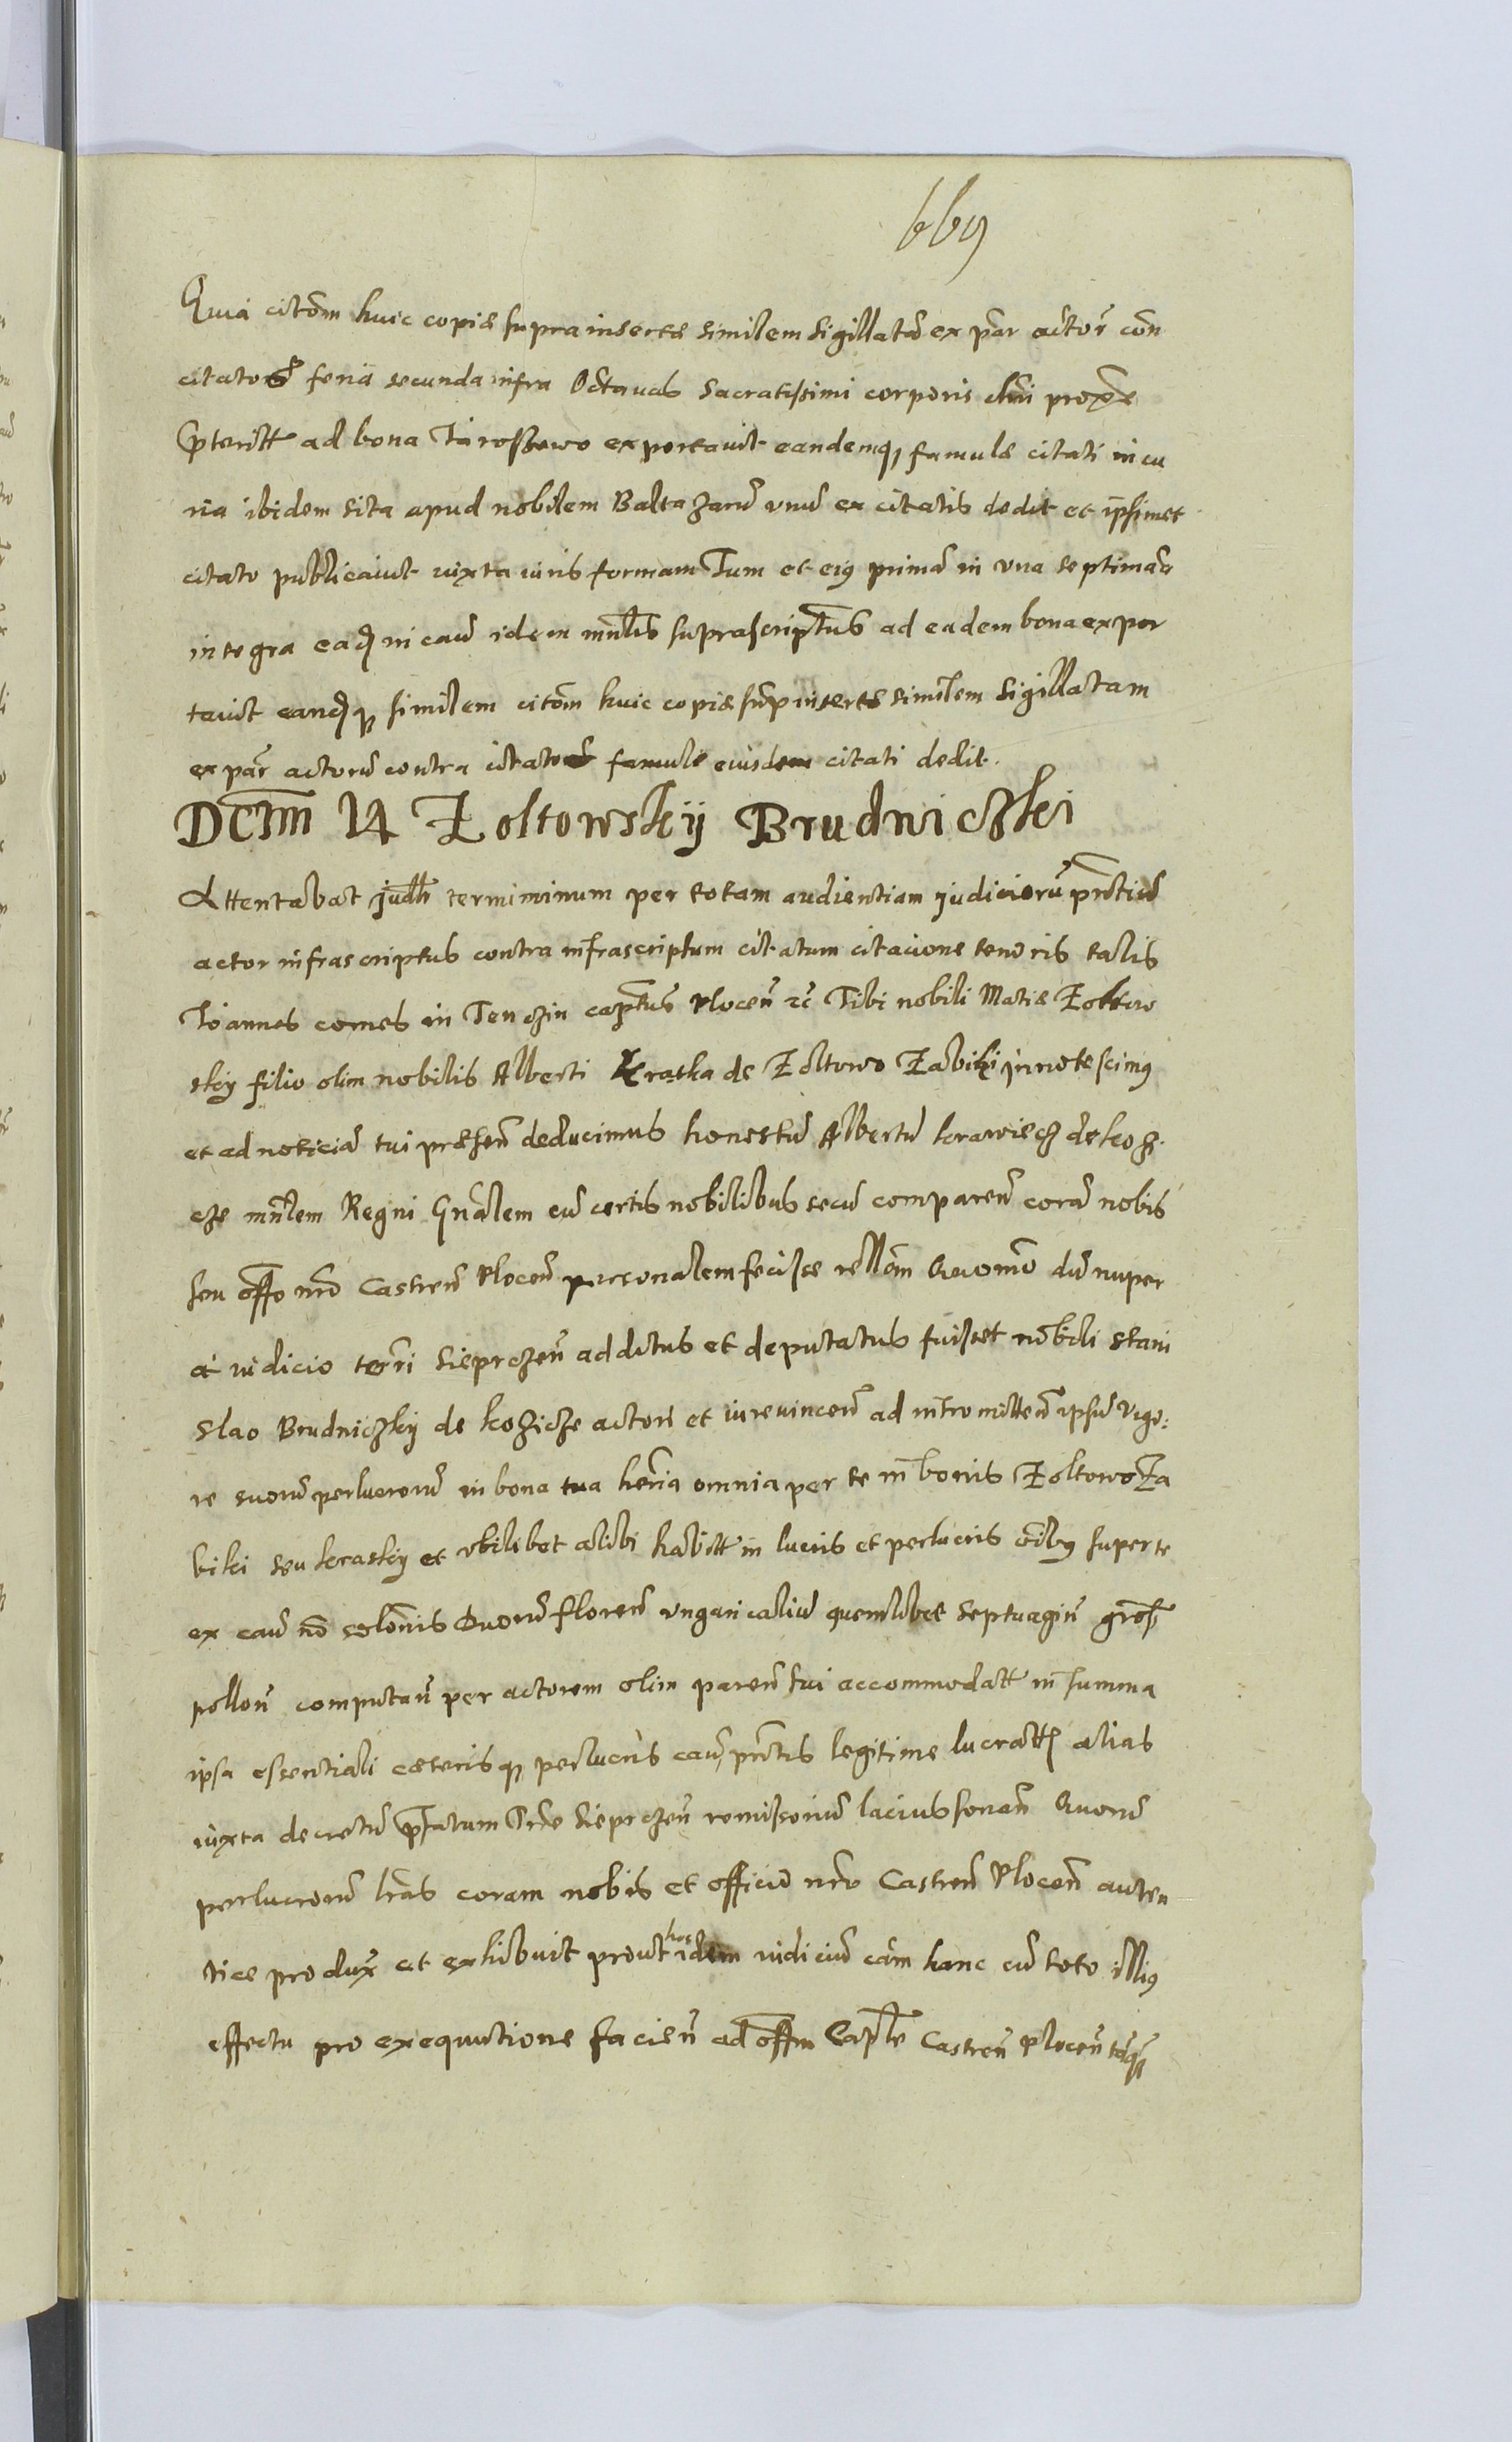 669
Quia citōm huic copiæ supra insertæ similem sigillatā ex par actor̄ con
citator̄ feria secunda infra Octavas Sacratissimi corporis chri proxe
pteritt ad bona Jaroszewo exportavit eandemq famulæ citati in cu
ria ibidem sita apud nobilem Baltazarū vnū ex citatis dedit et ipsimet
citato publicavit iuxta iuris formam Tum et eiꝯ primā in vna septimana
integra eaꝗ in cau idem mnlis suprascriptus ad eadem bona expor
tavit eandꝗ similem citōm huic copiæ sup insertæ similem sigillatam
ex par actorū contra citator famulæ eiusdem citati dedit.
Dctm 14 Żoltowskÿ Brudniczki
Attentabat judlr termiminum per totam audientiam judiciorū pntiū
actor infrascriptus contra infrascriptum citatum citacione tenoris talis
Joannes comes in Tenczin captus Plocen̄ zc̄ Tibi nobili Matiæ Żoltow
skÿ filio olim nobilis Alberti Kraska de Żoltowo Żabiki innotescimꝯ
et ad noticiā tui præsen̄ deducimus honestū Albertū krawiecz de koz.
cze mnlem Regni Gnalem cū certis nobilibus secū comparen̄ corā nobis
seu offo nro Castren̄ Plocen̄ personalem fecisse rellōm Quomō dū nuper
a iudicio terri Sieprczen̄ additus et deputatus fuisset nobili Stani
slao Brudniczkÿ de kozicze actori et iurevincen̄ ad intromitten̄ ipsū vigo:
re suorū perlucrorū in bona tua heria omnia per te in bonis Żoltowo Ża
biki seu kraskÿ et vbilibet alibi habitt in lucris et perlucris oibꝯ super te
ex cau nō solōnis Quorū floren̄ vngaricaliū quemlibet septuagin̄ gross
pollon̄ computan̄ per actorem olim paren̄ tui accommodatt in summa
ipsa essentiali cæterisq perlucris cau pntis legitime lucratt alias
iuxta decretū pfatum Trre Sieprczen̄ remissoriū lacius sonan̄ Quorū
perlucrorū lras coram nobis et officio nro Castren̄ Plocen̄ auten
tice produx et exhibuit prout hoc idem iudiciū cām hanc cū toto illiꝯ
effectu pro exequutione facien̄ ad offm Caple Castren̄ Plocen̄ tanꝗ